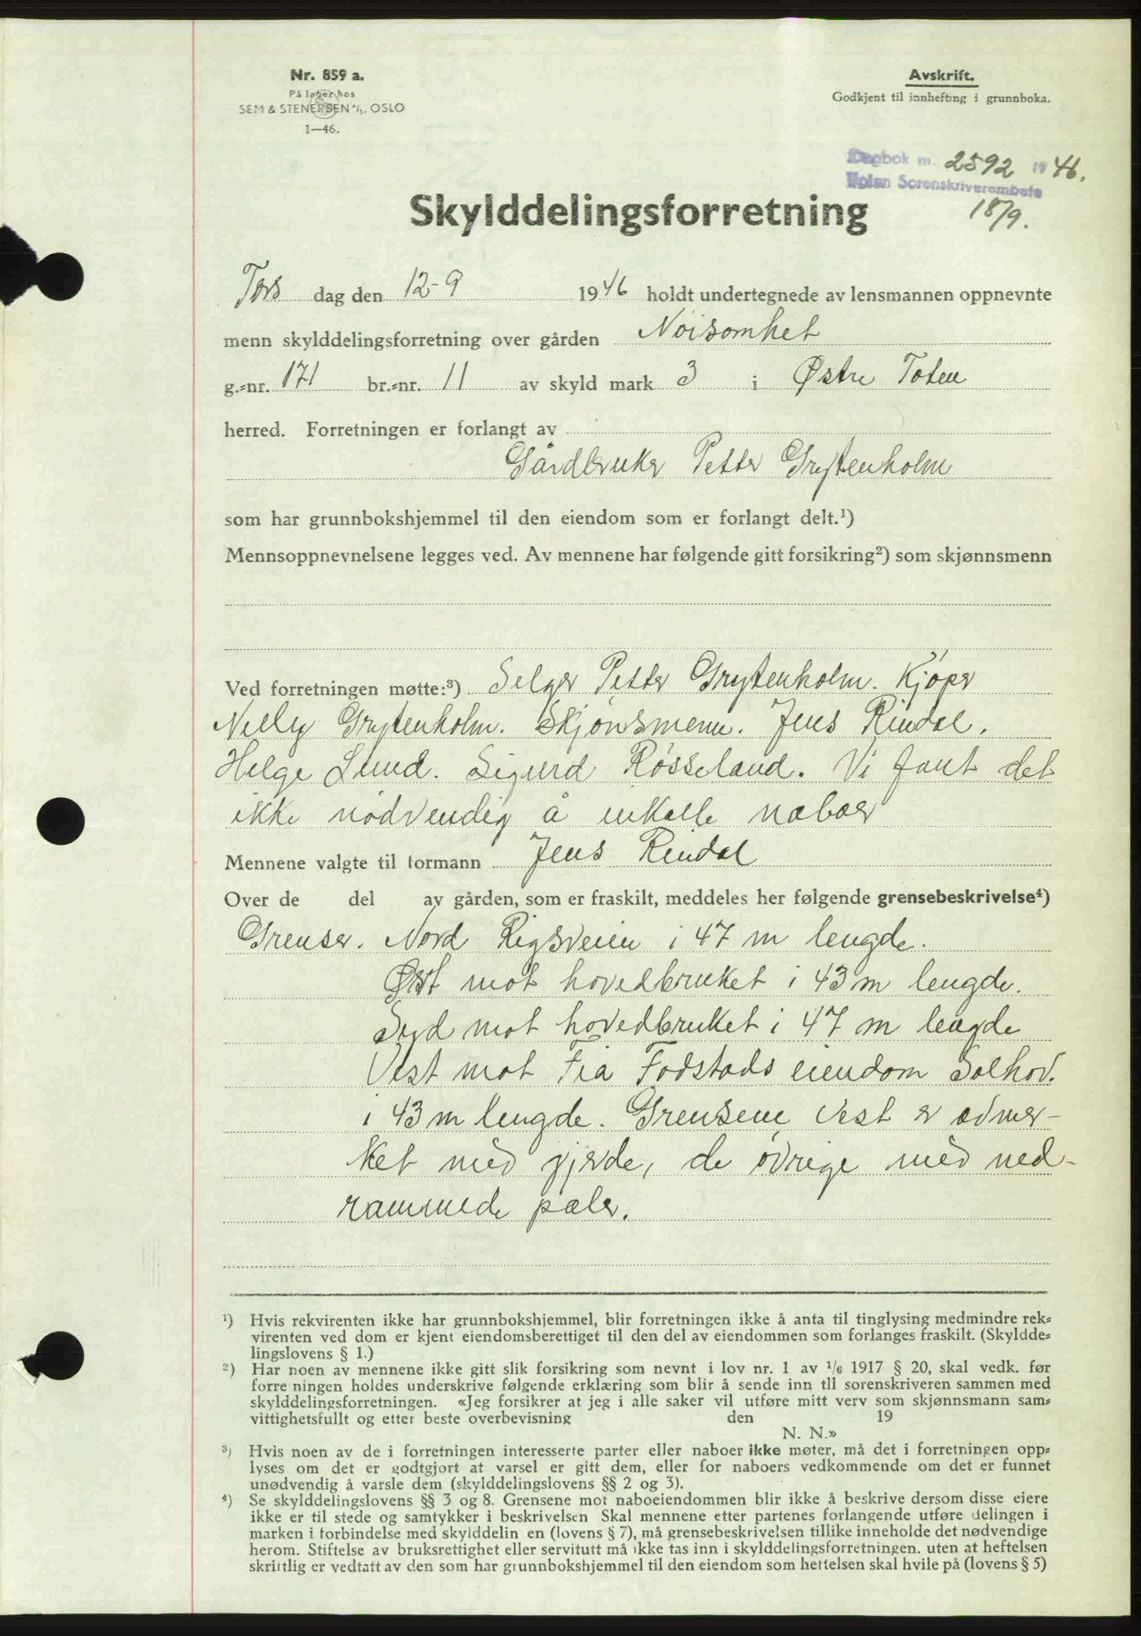 Nr. 859 a.
På lager hos
SEM & STENERSEN A/S. OSLO
1—46.
Avskrift.
Godkjent til innhefting i grunnboka.
Dagbok nr. 2592 19 46.
Sorenskriverembete
18/9.
Skylddelingsforretning
Tors dag den 12-9 1946 holdt undertegnede av lensmannen oppnevnte
menn skylddelingsforretning over gården Nöisomhet
g.-nr. 171 br.-nr. 11 av skyld mark 3 i Østre Toten
herred. Forretningen er forlangt av
Gårdbruker Petter Grytenholm
som har grunnbokshjemmel til den eiendom som er forlangt delt.¹)
Mennsoppnevnelsene legges ved. Av mennene har følgende gitt forsikring²) som skjønnsmenn
Ved forretningen møtte:³) Selger Petter Grytenholm. Kjöper
Nelly Grytenholm. Skjönsmenn. Jens Rindal.
Helge Lund. Sigurd Røsseland. Vi fant det
ikke nödvendig å inkalle naboer
Mennene valgte til formann Jens Rindal
Over de del av gården, som er fraskilt, meddeles her følgende grensebeskrivelse⁴)
Grenser. Nord Rigsveien i 47 m lengde.
Øst mot hovedbruket i 43 m lengde.
Syd mot hovedbruket i 47 m lengde
Vest mot Fia Fodstads eiendom Solhov.
i 43 m lengde. Grensene Vest er avmer-
ket med gjerde, de övrige med ned-
rammede pæler.
¹) Hvis rekvirenten ikke har grunnbokshjemmel, blir forretningen ikke å anta til tinglysing medmindre rek-
virenten ved dom er kjent eiendomsberettiget til den del av eiendommen som forlanges fraskilt. (Skyldde-
lingslovens § 1.)
²) Har noen av mennene ikke gitt slik forsikring som nevnt i lov nr. 1 av 1/6 1917 § 20, skal vedk. før
forre ningen holdes underskrive følgende erklæring som blir å sende inn tll sorenskriveren sammen med
skylddelingsforretningen. «Jeg forsikrer at jeg i alle saker vil utføre mitt verv som skjønnsmann sam-
vittighetsfullt og etter beste overbevisning den 19
N. N.»
³) Hvis noen av de i forretningen interesserte parter eller naboer ikke møter, må det i forretningen opp-
lyses om det er godtgjort at varsel er gitt dem, eller for naboers vedkommende om det er funnet
unødvendig å varsle dem (skylddelingslovens §§ 2 og 3).
⁴) Se skylddelingslovens §§ 3 og 8. Grensene mot naboeiendommen blir ikke å beskrive dersom disse eiere
ikke er til stede og samtykker i beskrivelsen Skal mennene etter partenes forlangende utføre delingen i
marken i forbindelse med skylddelin en (lovens § 7), må grensebeskrivelsen tillike inneholde det nødvendige
herom. Stiftelse av bruksrettighet eller servitutt må ikke tas inn i skylddelingsforretningen. uten at heftelsen
skriftlig er vedtatt av den som har grunnbokshjemmel til den eiendom som heftelsen skal hvile på (lovens § 5)